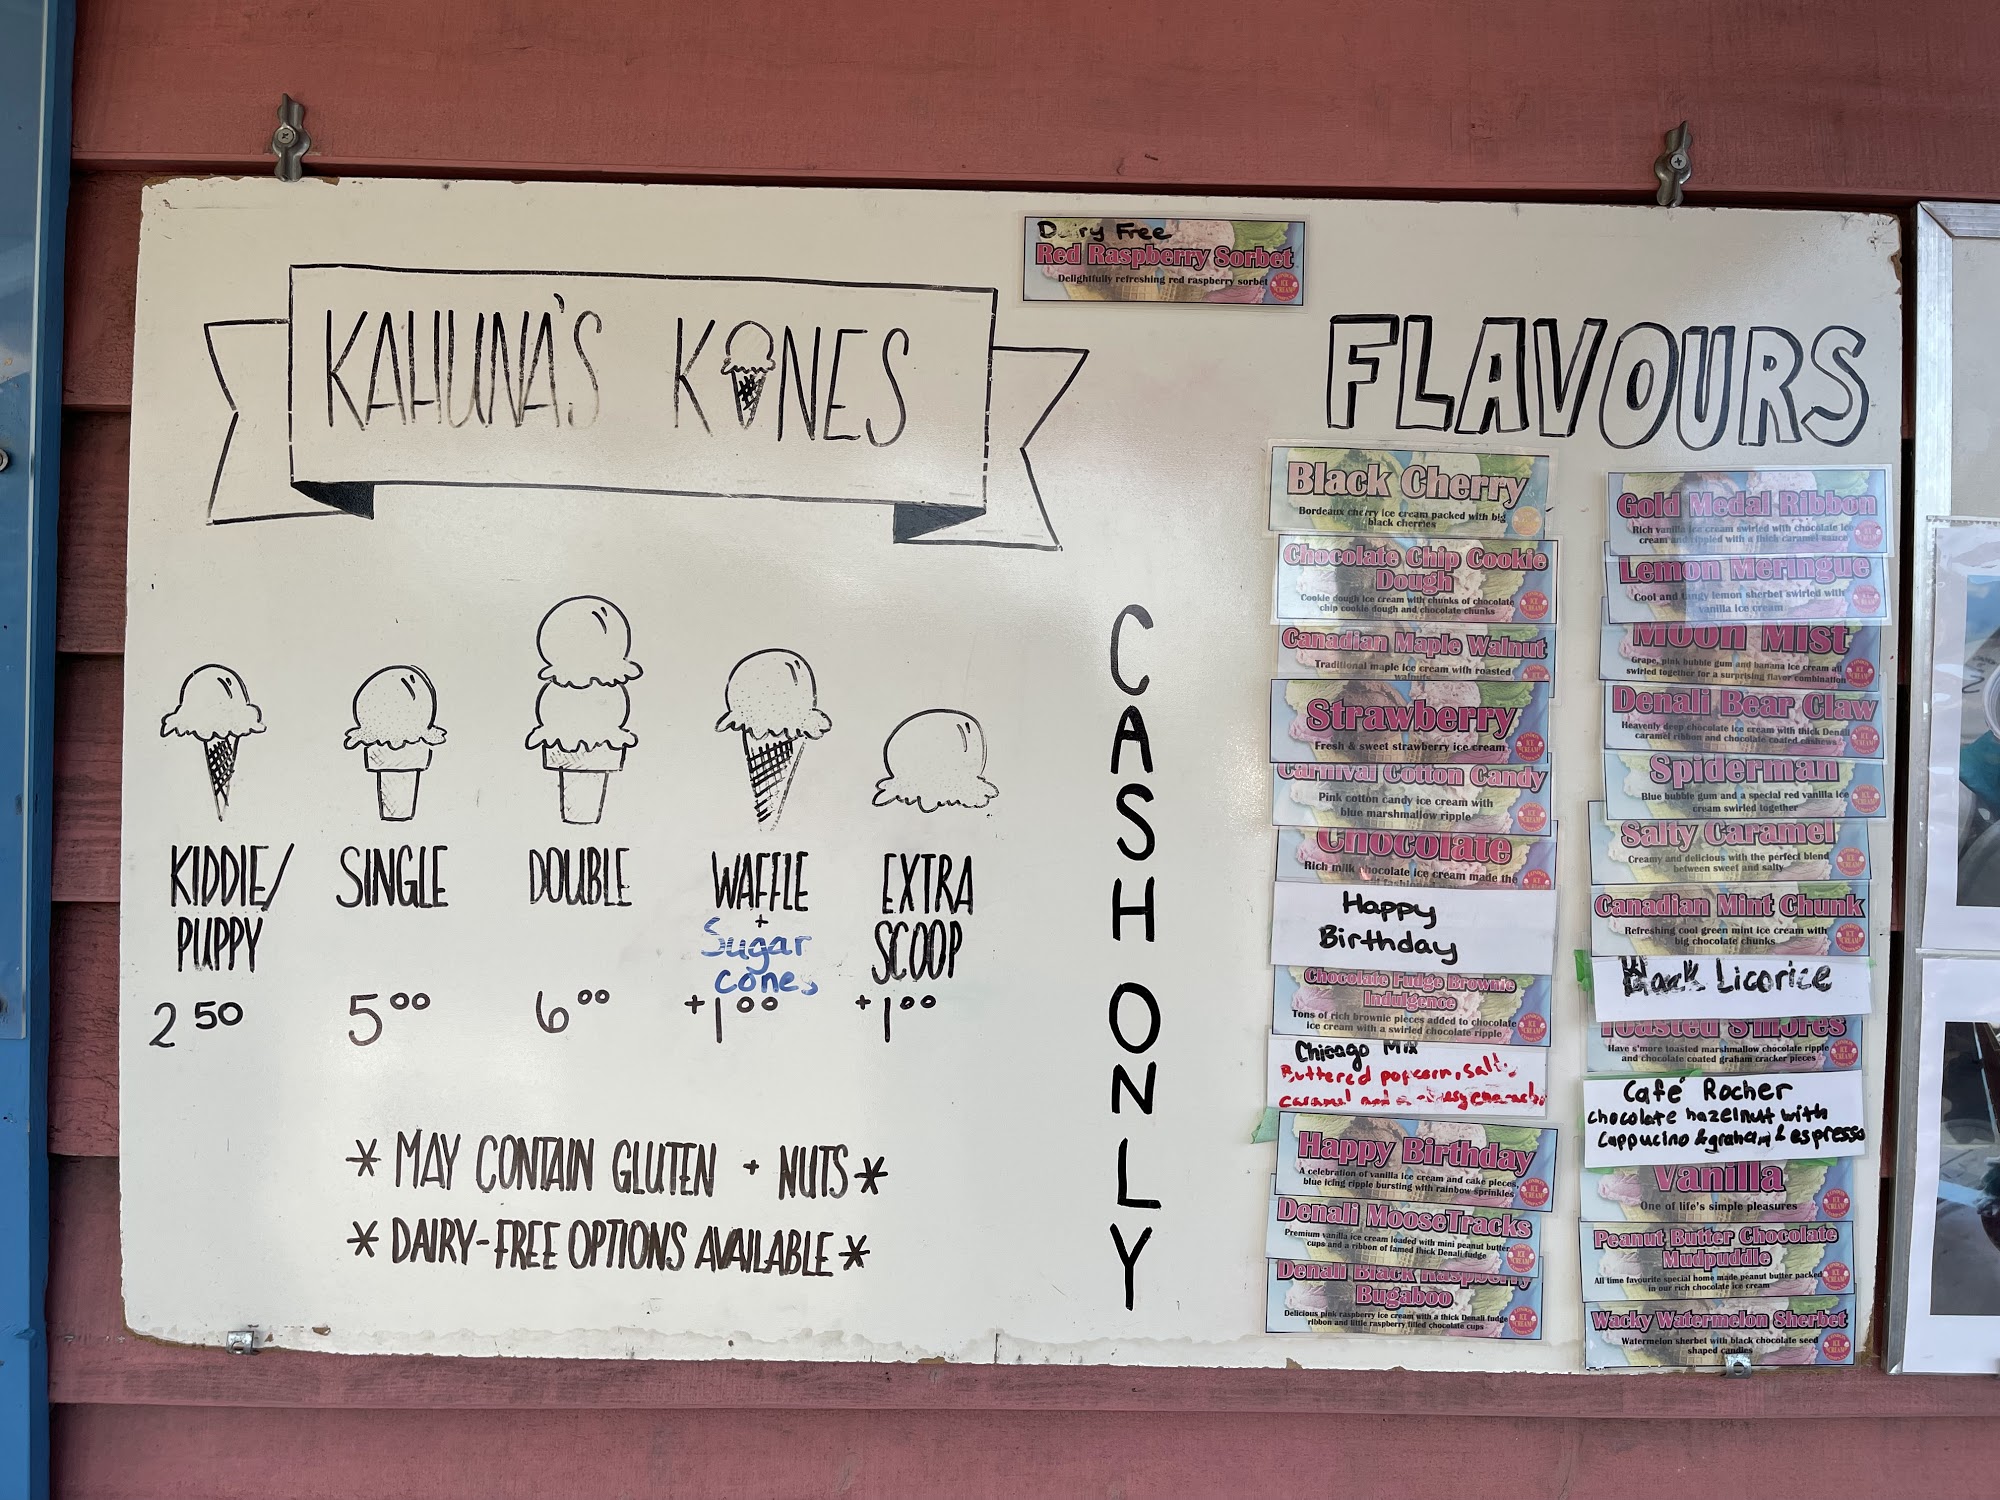 Dairy Free
Red Raspberry Sorbet
Delightfully refreshing red raspberry sorbet
KAHUNA'S KONES
KIDDIE/
PUPPY
2 50
SINGLE
5 00
DOUBLE
6 00
WAFFLE
+
Sugar
cones
+1 00
EXTRA
SCOOP
+1 00
* MAY CONTAIN GLUTEN + NUTS *
* DAIRY-FREE OPTIONS AVAILABLE *
CASH ONLY
FLAVOURS
Black Cherry
Bordeaux cherry ice cream packed with big
black cherries
Chocolate Chip Cookie
Dough
Cookie dough ice cream with chunks of chocolate
chip cookie dough and chocolate chunks
Canadian Maple Walnut
Traditional maple ice cream with roasted
walnuts
Strawberry
Fresh & sweet strawberry ice cream
Carnival Cotton Candy
Pink cotton candy ice cream with
blue marshmallow ripple
Chocolate
Rich milk chocolate ice cream made the
Happy
Birthday
Chocolate Fudge Brownie
Indulgence
Tons of rich brownie pieces added to chocolate
ice cream with a swirled chocolate ripple
Chicago Mix
Buttered popcorn, salty
caramel
Happy Birthday
A celebration of vanilla ice cream and cake pieces,
blue icing ripple bursting with rainbow sprinkles
Denali MooseTracks
Premium vanilla ice cream loaded with mini peanut butter
cups and a ribbon of famed thick Denali fudge
Denali Black Raspberry
Bugaboo
Delicious pink raspberry ice cream with a thick Denali fudge
ribbon and little raspberry filled chocolate cups
Gold Medal Ribbon
Rich vanilla ice cream swirled with chocolate ice
cream and rippled with a thick caramel sauce
Lemon Meringue
Cool and tangy lemon sherbet swirled with
vanilla ice cream
Moon Mist
Grape, pink bubble gum and banana ice cream all
swirled together for a surprising flavor combination
Denali Bear Claw
Heavenly deep chocolate ice cream with thick Denali
caramel ribbon and chocolate coated cashews
Spiderman
Blue bubble gum and a special red vanilla ice
cream swirled together
Salty Caramel
Creamy and delicious with the perfect blend
between sweet and salty
Canadian Mint Chunk
Refreshing cool green mint ice cream with
big chocolate chunks
Black Licorice
Toasted S'mores
Have s'more toasted marshmallow chocolate ripple
and chocolate coated graham cracker pieces
Café Rocher
chocolate hazelnut with
Cappucino & graham & espresso
Vanilla
One of life's simple pleasures
Peanut Butter Chocolate
Mudpuddle
All time favourite special home made peanut butter packed
in our rich chocolate ice cream
Wacky Watermelon Sherbet
Watermelon sherbet with black chocolate seed
shaped candies